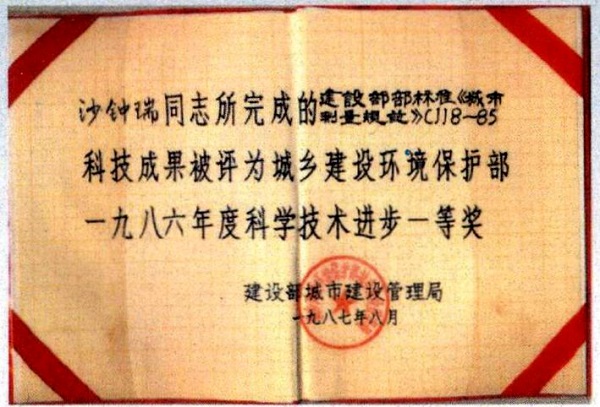 沙钟瑞同志所完成的建設部部标准《城市
测量规范》CJJ8-85
科技成果被评为城乡建设环境保护部
一九八六年度科学技术进步一等奖
建设部城市建设管理局
一九八七年八月